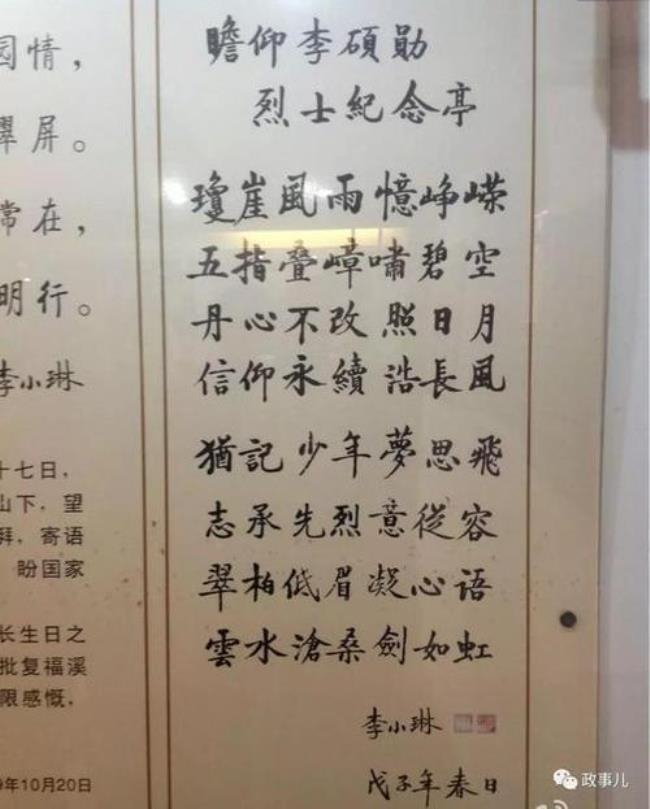 园情，
翠屏。
常在，
明行。
李小琳
十七日，
山下，望
拜，寄语
盼国家
长生日之
批复福溪
限感慨，
9年10月20日
瞻仰李硕勋
烈士紀念亭
瓊崖風雨憶峥嵘
五指叠嶂嘯碧空
丹心不改照日月
信仰永續浩長風
猶記少年夢思飛
志承先烈意從容
翠柏低眉凝心语
雲水滄桑劍如虹
李小琳
戊子年春日
政事儿